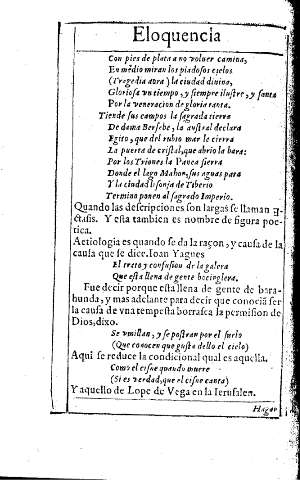 Eloquencia
Con pies de plata a no volver camina,
En medio miran los piadosos cielos
(Tragedia aora) la ciudad divina,
Gloriosa un tiempo, y siempre ilustre, y santa
Por la veneracion de gloria tanta.
Tiende sus campos la sagrada tierra
De dama Bersebe, la austral declara
Egito, que del rubio mar le cierra
La puerta de cristal, que abrio la vara:
Por los Triones la Panea sierra
Donde el lago Mahon, sus aguas para
Y la ciudad lisonja de Tiberio
Termino ponen al sagrado Imperio.
Quando las descripciones son largas se llaman
stasis. Y esta tambien es nombre de figura poe-
tica.
Aetiologia es quando se da la raçon, y causa de la
causa que se dice. Ioan Yagues
El treto y confusion de la galera
Que esta llena de gente bocinglera.
Fue decir porque esta llena de gente de bara-
hunda, y mas adelante para decir que conociã ser
la causa de vna tempesta borrasca la permision de
Dios, dixo.
Se vmillan, y se postran por el suelo
(Que conocen que gusta dello el cielo)
Aqui se reduce la condicional qual es aquella.
Como el cisne quando muere
(Si es verdad, que el cisne canta)
Y aquello de Lope de Vega en la Ierusalen.
Hagan